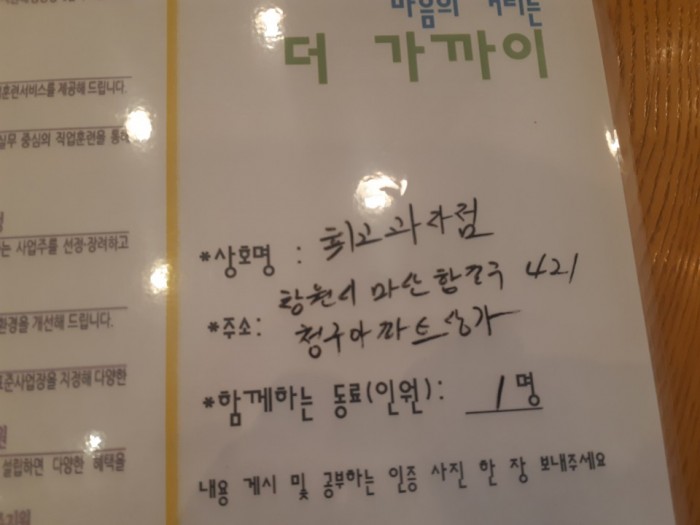 마음의 거리는
더 가까이
훈련서비스를 제공해 드립니다.
실무 중심의 직업훈련을 통해
는 사업주를 선정·장려하고
환경을 개선해 드립니다.
표준사업장을 지정해 다양한
설립하면 다양한 혜택을
*상호명 : 최고과자점
창원시 마산합포구 421
*주소: 청구아파트상가
*함께하는 동료(인원): 1명
내용 게시 및 공부하는 인증 사진 한 장 보내주세요